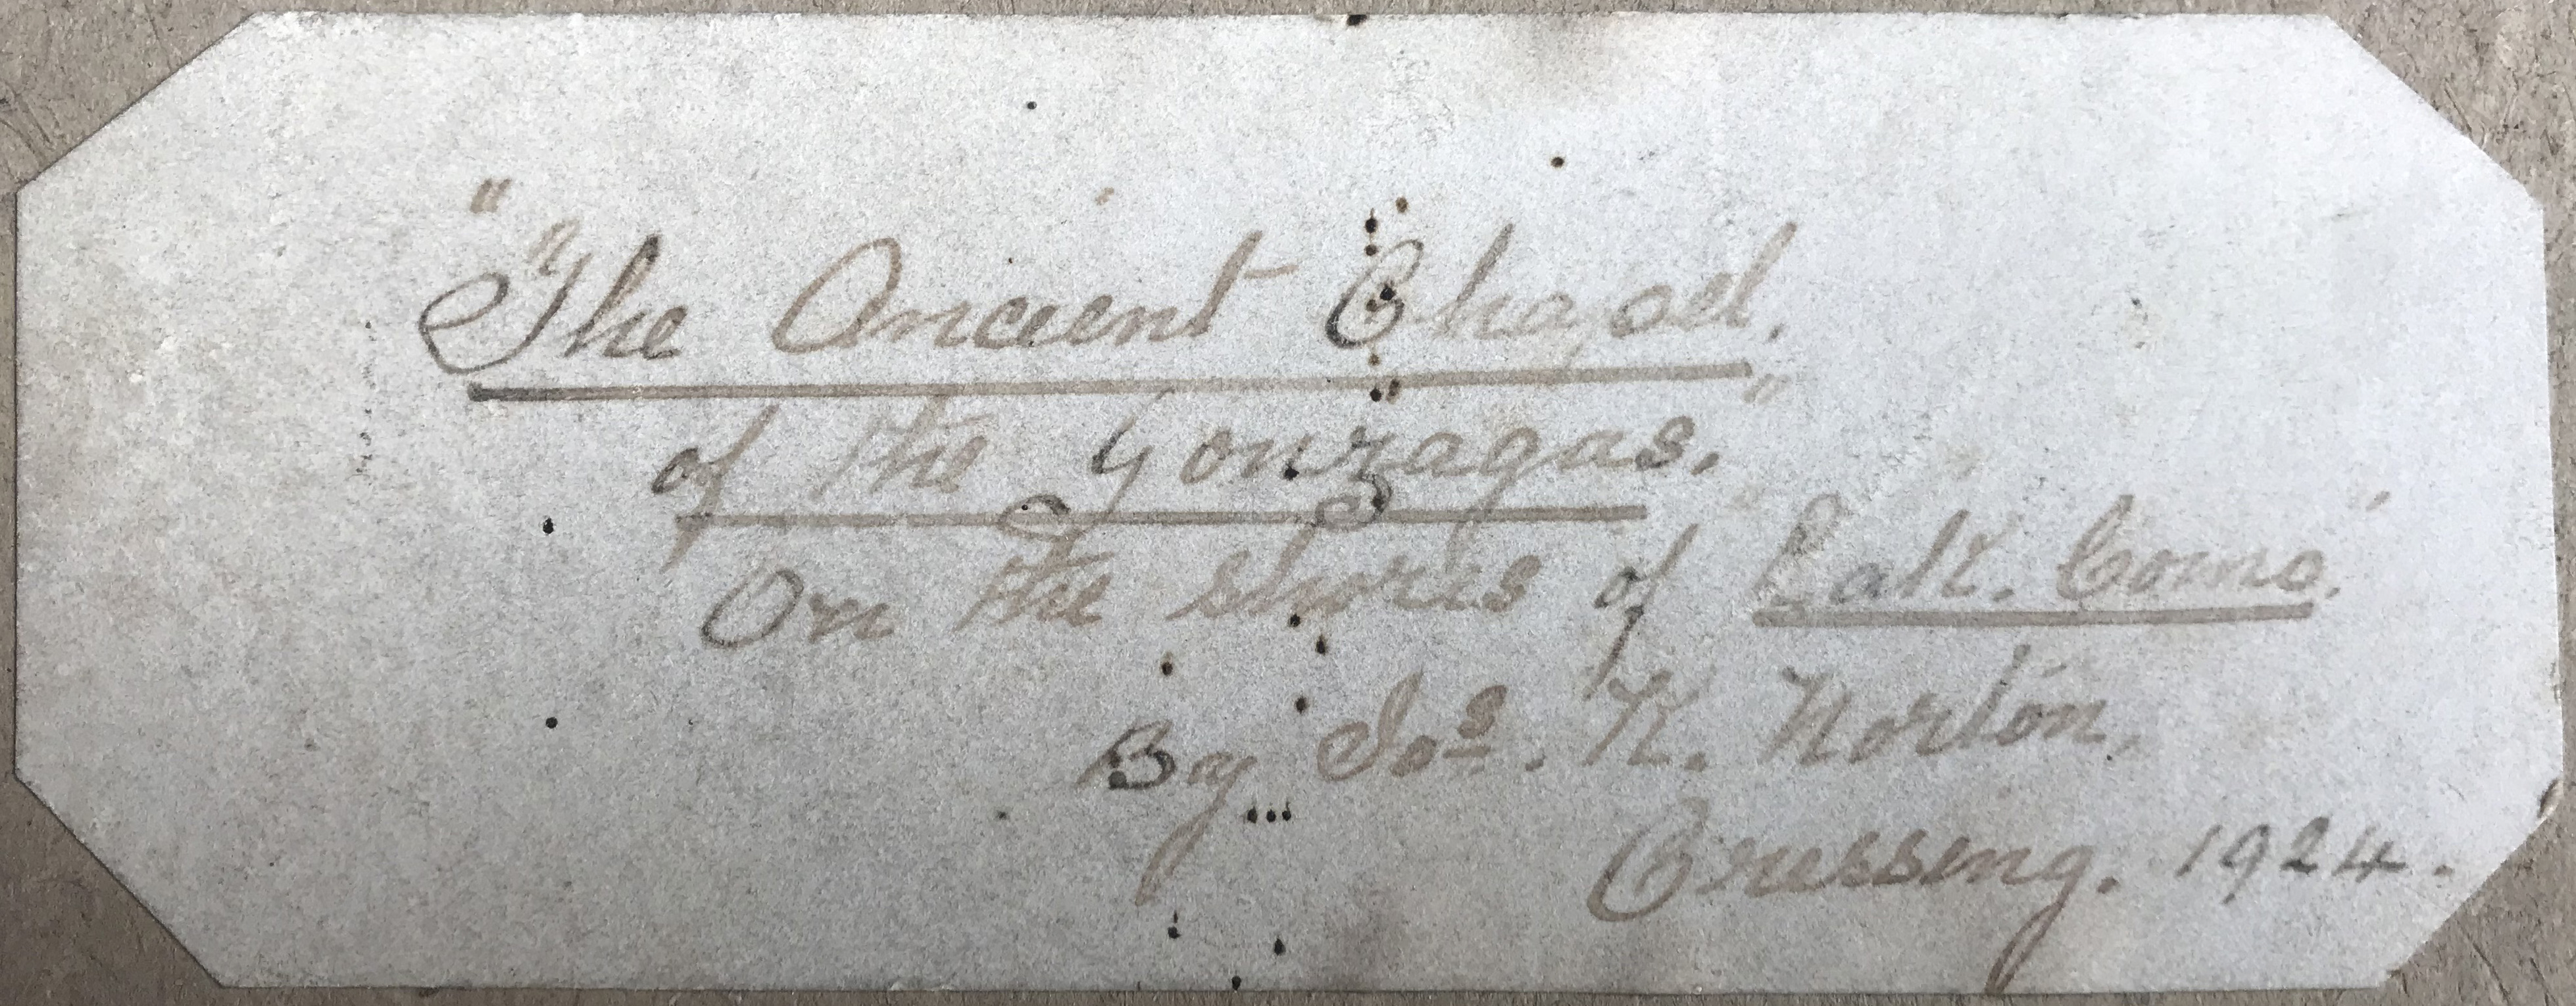 "The Ancient Chapel.
of the Gonzagas."
On the shores of "Lake. Como."
By Jos. K. Norton,
Cressing. 1924.